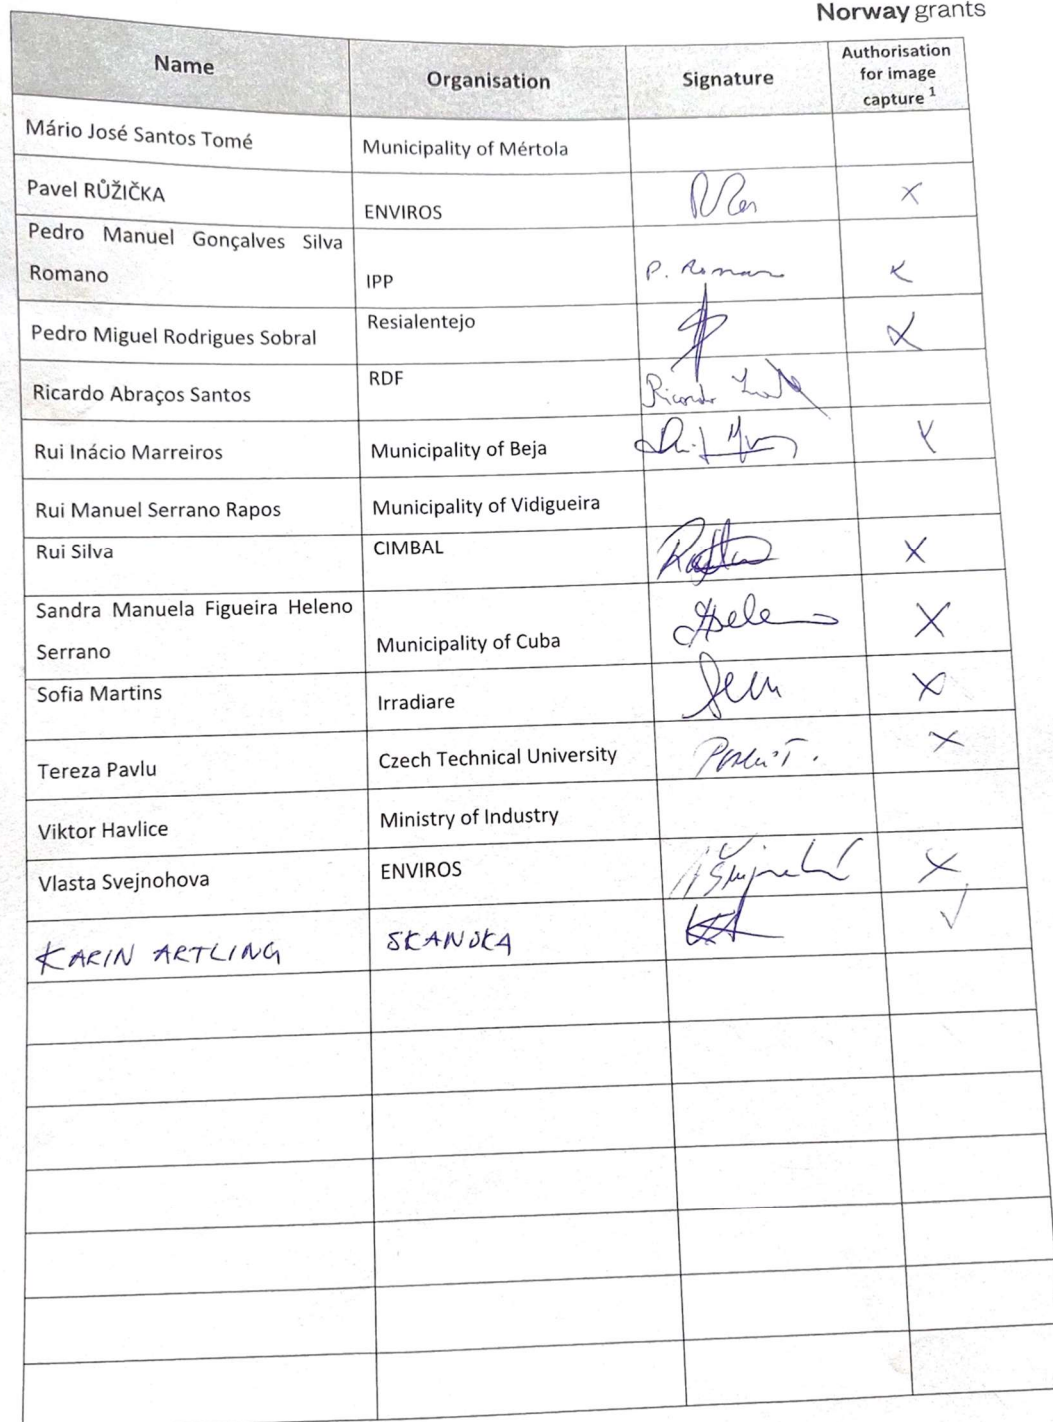 Norway grants
Name Organisation Signature Authorisation
for image
capture 1
Mário José Santos Tomé Municipality of Mértola
Pavel RŮŽIČKA ENVIROS X
Pedro Manuel Gonçalves Silva
Romano IPP P. Romano X
Pedro Miguel Rodrigues Sobral Resialentejo X
Ricardo Abraços Santos RDF Ricardo
Rui Inácio Marreiros Municipality of Beja X
Rui Manuel Serrano Rapos Municipality of Vidigueira
Rui Silva CIMBAL X
Sandra Manuela Figueira Heleno
Serrano Municipality of Cuba X
Sofia Martins Irradiare X
Tereza Pavlu Czech Technical University X
Viktor Havlice Ministry of Industry
Vlasta Svejnohova ENVIROS X
KARIN ARTLING SKANSKA ✓